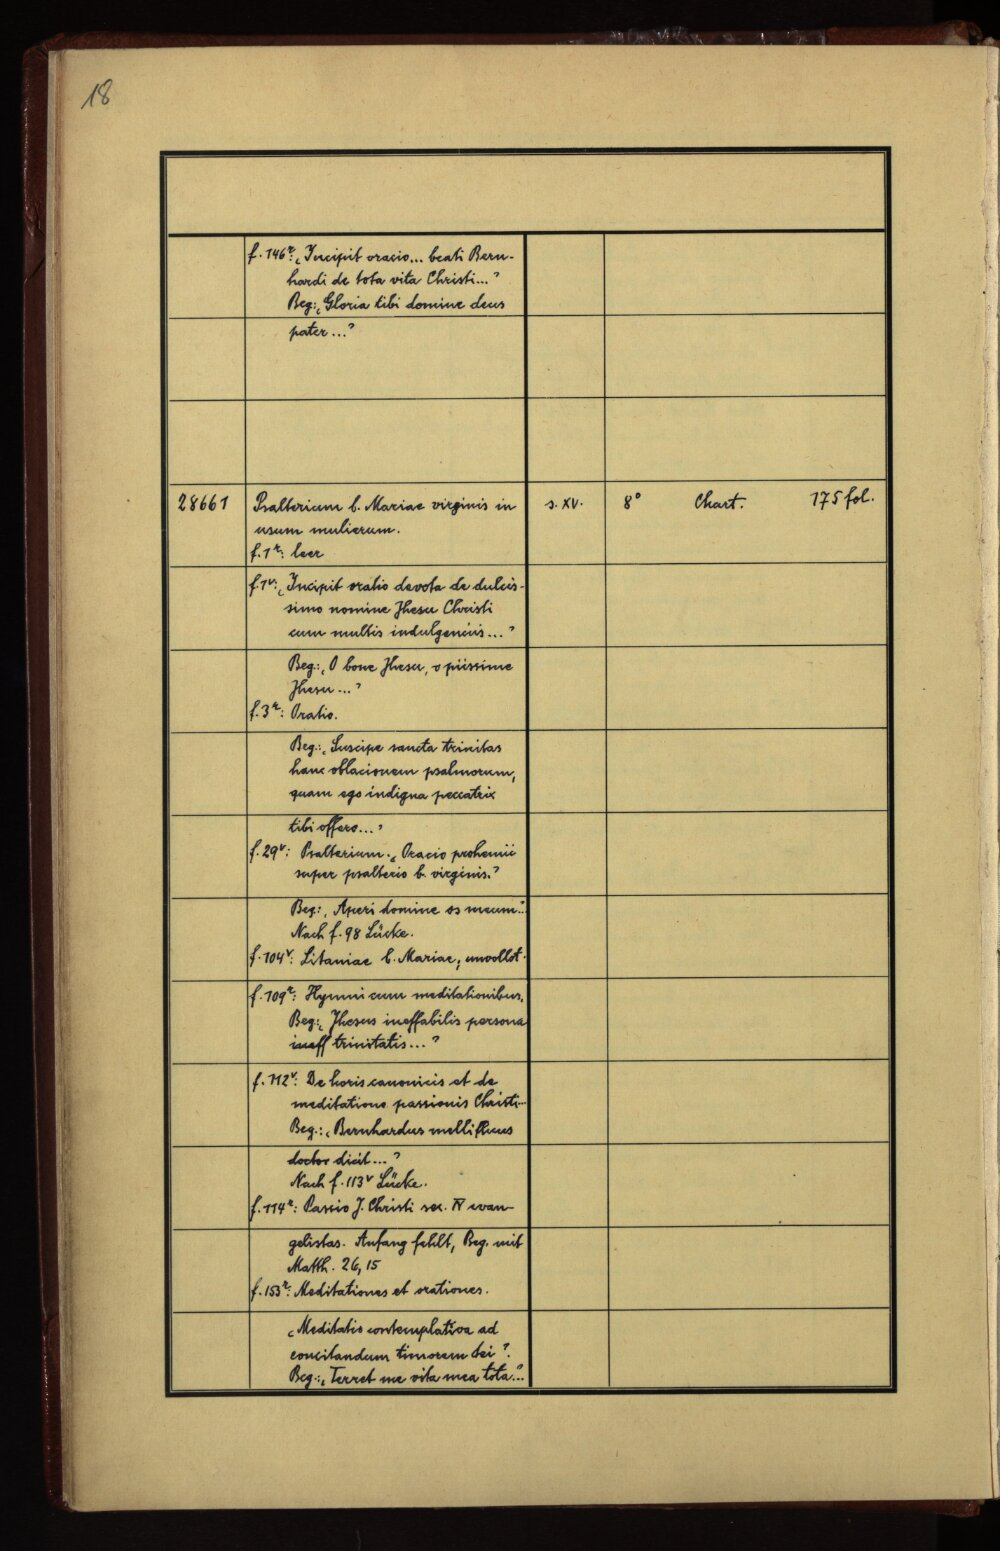 18
f. 146r: „Incipit oracio... beati Bern-
hardi de tota vita Christi..."
Beg: „Gloria tibi domine deus
pater..."
28661 Psalterium b. Mariae virginis in s. XV. 8° Chart. 175 fol.
usum mulierum.
f. 1r: leer
f. 1v: „Incipit oratio devota de dulcis-
simo nomine Jhesu Christi
cum multis indulgenciis..."
Beg.: „O bone Jhesu, o piissime
Jhesu..."
f. 3r: Oratio.
Beg.: „Suscipe sancta trinitas
hanc oblacionem psalmorum,
quam ego indigna peccatrix
tibi offero..."
f. 29v: Psalterium. „Oracio prohemii
super psalterio b. virginis."
Beg: „Aperi domine os meum..."
Nach f. 98 Lücke.
f. 104v: Litaniae b. Mariae, unvollst.
f. 109r: Hymni cum meditationibus.
Beg: „Jhesus ineffabilis persona
ineff trinitatis..."
f. 112v: De horis canonicis et de
meditatione passionis Christi...
Beg.: „Bernhardus mellifluus
doctor dicit..."
Nach f. 113v Lücke.
f. 114r: Passio J. Christi sec. IV evan-
gelistas. Anfang fehlt, Beg. mit
Matth. 26, 15
f. 153r: Meditationes et orationes.
„Meditatio contemplativa ad
concitandum timorem dei".
Beg: „Terret me vita mea tota..."